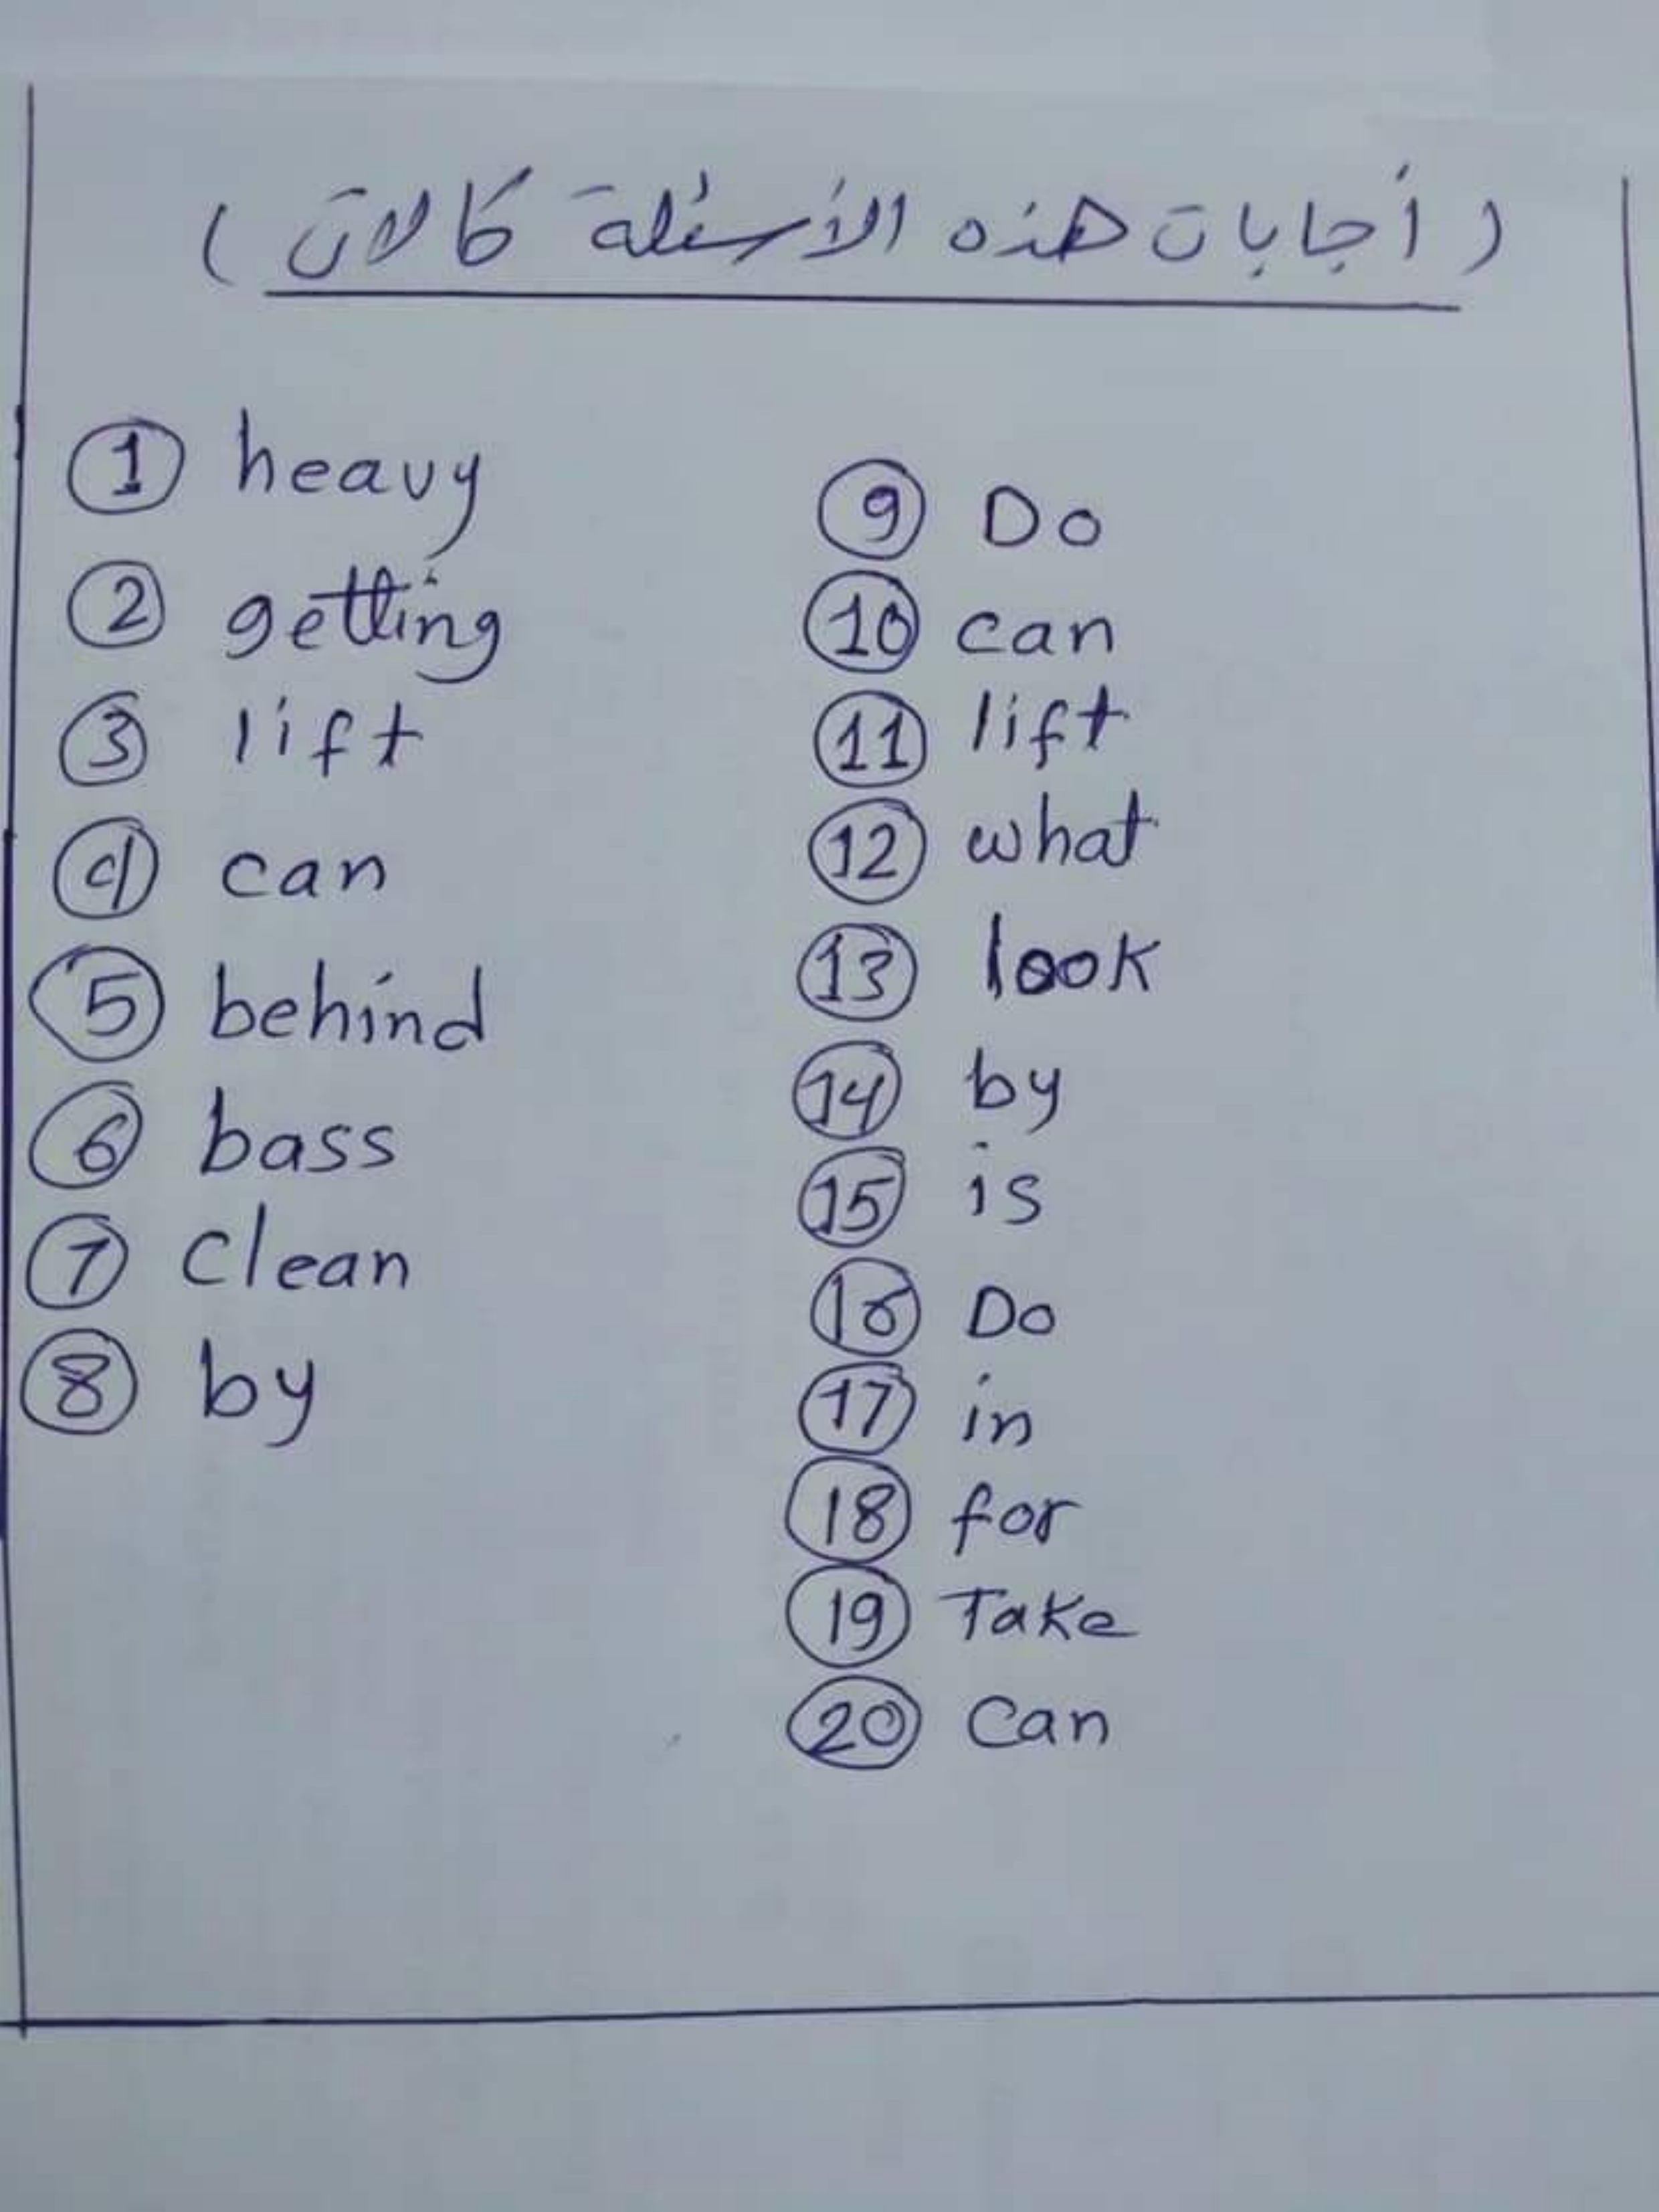 ( أجابات هذه الأسئلة كالات )
1 heavy
2 getting
3 lift
4 can
5 behind
6 bass
7 Clean
8 by
9 Do
10 can
11 lift
12 what
13 look
14 by
15 is
16 Do
17 in
18 for
19 Take
20 Can